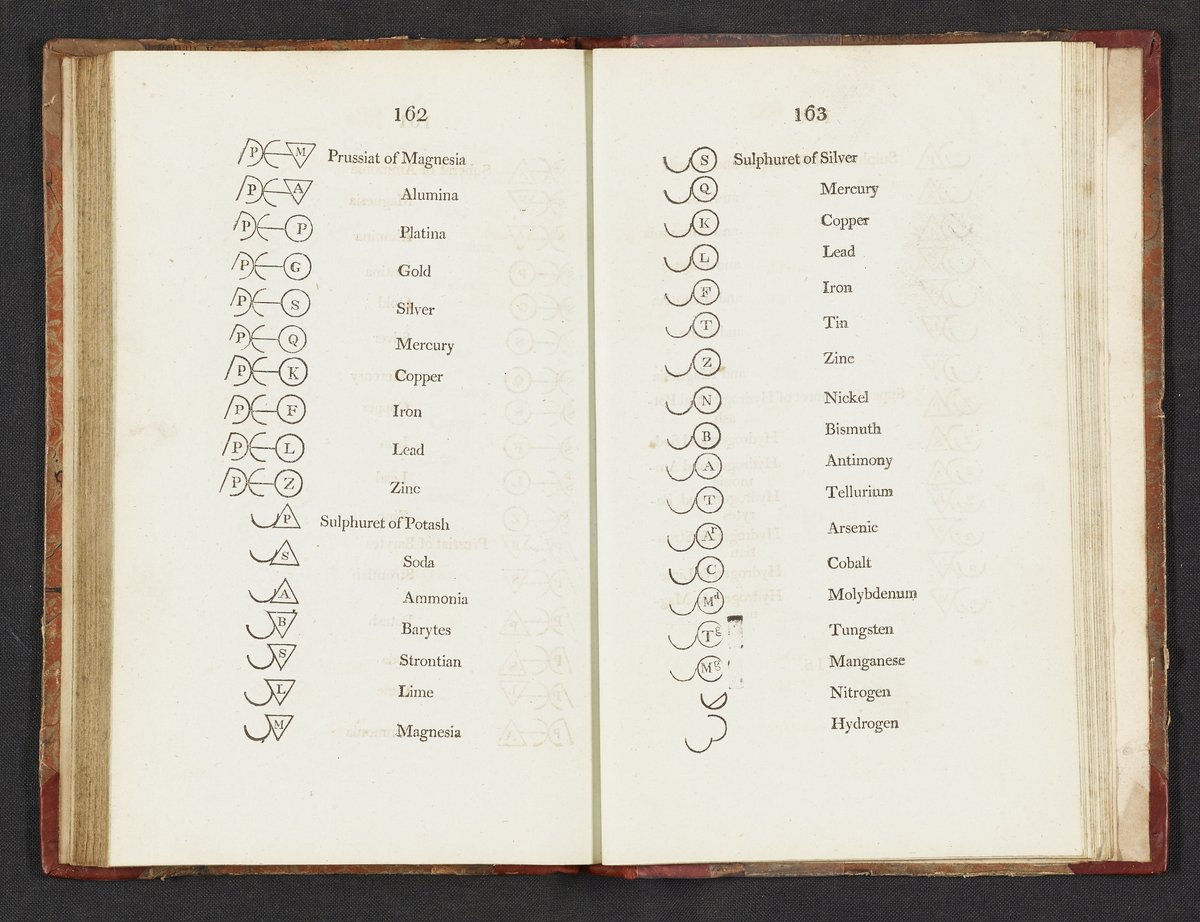 162
P M Prussiat of Magnesia
P A Alumina
P P Platina
P G Gold
P S Silver
P Q Mercury
P K Copper
P F Iron
P L Lead
P Z Zinc
P Sulphuret of Potash
S Soda
A Ammonia
B Barytes
S Strontian
L Lime
M Magnesia
163
S Sulphuret of Silver
Q Mercury
K Copper
L Lead
F Iron
T Tin
Z Zinc
N Nickel
B Bismuth
A Antimony
T Tellurium
Ar Arsenic
C Cobalt
Md Molybdenum
Tg Tungsten
Mg Manganese
Nitrogen
Hydrogen